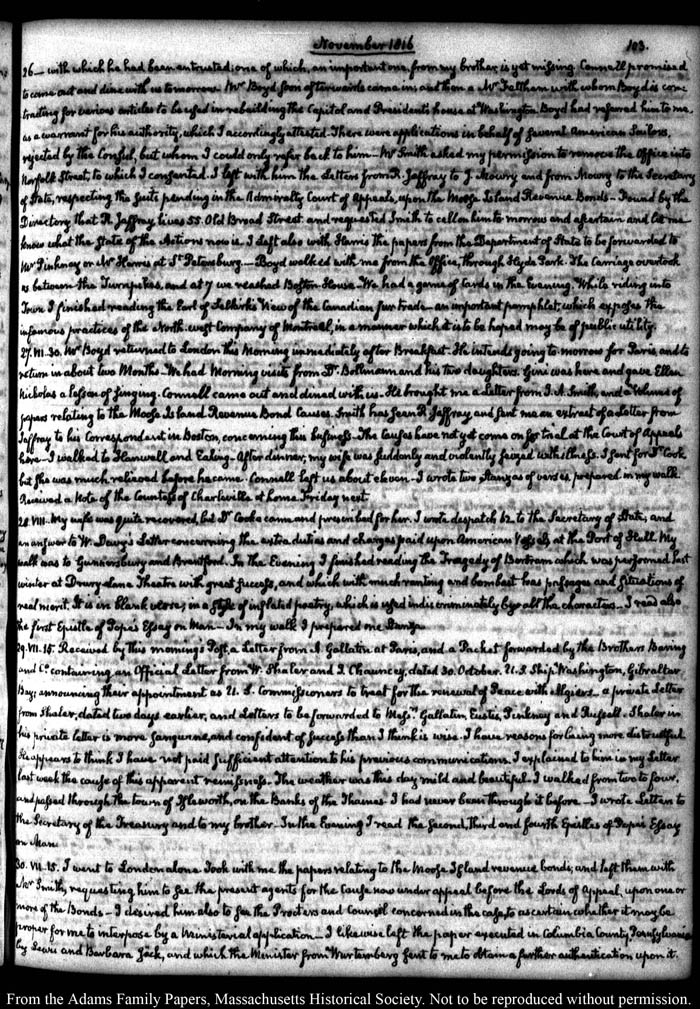 November 1816
103.
26— with which he had been entrusted; one of which, an important one from my brother is yet missing. Connell promised
to come out and dine with us tomorrow. Mr Boyd soon afterwards came in; and then a Mr Feltham with whom Boyd is con-
tracting for various articles to be used in rebuilding the Capitol and President's house at Washington. Boyd had referred him to me,
as a warrant for his authority, which I accordingly attested. There were applications in behalf of several American Sailors,
rejected by the Consul, but whom I could only refer back to him— Mr Smith asked my permission to remove the Office into
Norfolk Street, to which I consented. I left with him the Letters from R. Jaffray to J. Mowry and from Mowry to the Secretary
of State, respecting the suits pending in the Admiralty Court of Appeals, upon the Moose Island Revenue Bonds— Found by the
Directory that R. Jaffray lives 55. Old Broad Street. and requested Smith to call on him to morrow and ascertain and let me
know what the State of the Actions now is. I left also with Harris the papers from the Department of State to be forwarded to
Mr Pinkney or Mr Harris at St. Petersburg.— Boyd walked with me from the Office, through Hyde Park. The Carriage overtook
us between the Turnpikes, and at 7 we reached Boston-House. We had a game of Cards in the Evening. While riding into
Town I finished reading the Earl of Selkirk's View of the Canadian fur trade— an important pamphlet, which exposes the
infamous practices of the North-west Company of Montreal, in a manner which it is to be hoped may be of public utility.
27. VI. 30. Mr Boyd returned to London this Morning immediately after Breakfast. He intends going to-morrow for Paris, and to
return in about two Months. We had Morning visits from Dr. Bollmann and his two daughters. Gini was here and gave Ellen
Nicholas a lesson of singing. Connell came out and dined with us. He brought me a Letter from J. A. Smith, and a volume of
papers relating to the Moose Island Revenue Bond Causes. Smith has seen R. Jaffray, and sent me an extract of a Letter from
Jaffray to his Correspondent in Boston, concerning this business— The Causes have not yet come on for trial at the Court of Appeals
here— I walked to Hanwell and Ealing. After dinner, my wife was suddenly and violently seized with illness. I sent for Dr Cook
but she was much relieved before he came. Connell left us about eleven— I wrote two Stanzas of verses, prepared in my walk
Received a Note of the Countess of Charleville at home Friday next
28. VIII. My wife was quite recovered, but Dr Cooke came and prescribed for her. I wrote dispatch 62. to the Secretary of State; and
an answer to W. Davy's Letter concerning the extra duties and charges paid upon American Vessels at the Port of Hull. My
walk was to Gunnersbury and Brentford. In the Evening I finished reading the Tragedy of Bertram which was performed last
winter at Drury-Lane Theatre with great success, and which with much ranting and bombast has passages and situations of
real merit. It is in blank verse; in a style of inflated poetry, which is used indiscriminately by all the characters— I read also
the first Epistle of Pope's Essay on Man— In my walk I prepared one Stanza.
29. VII. 15. Received by this morning's Post, a Letter from A. Gallatin at Paris, and a Packet forwarded by the Brothers Baring
and Co. containing an Official Letter from W. Shaler and I. Chauncey, dated 30. October. U.S. Ship Washington, Gibraltar
Bay; announcing their appointment as U.S. Commissioners to treat for the renewal of Peace with Algiers— a private Letter
from Shaler, dated two days earlier, and Letters to be forwarded to Messrs. Gallatin, Eustis, Pinkney and Russell. Shaler in
his private letter is more sanguine, and confident of success than I think is wise. I have reasons for being more distrustful.
He appears to think I have not paid sufficient attention to his previous communications. I explained to him in my Letter
last week the cause of this apparent remissness. The weather was this day mild and beautiful. I walked from two to four,
and passed through the town of Isleworth, on the Banks of the Thames— I had never been through it before— I wrote Letters to
the Secretary of the Treasury and to my brother— In the Evening I read the Second, Third and fourth Epistles of Pope's Essay
on Man.
30. VII. 15. I went to London alone. Took with me the papers relating to the Moose Island revenue bonds, and left them with
Mr Smith, requesting him to see the present agents for the Cause now under appeal before the Lords of Appeal, upon one or
more of the Bonds— I desired him also to see the Proctors and Council concerned in the case, to ascertain whether it may be
proper for me to interpose by a Ministerial application— I likewise left the paper executed in Columbia County, Pennsylvania
by Lewis and Barbara Jack, and which the Minister from Wurtemberg sent to me to obtain a further authentication upon it.
From the Adams Family Papers, Massachusetts Historical Society. Not to be reproduced without permission.